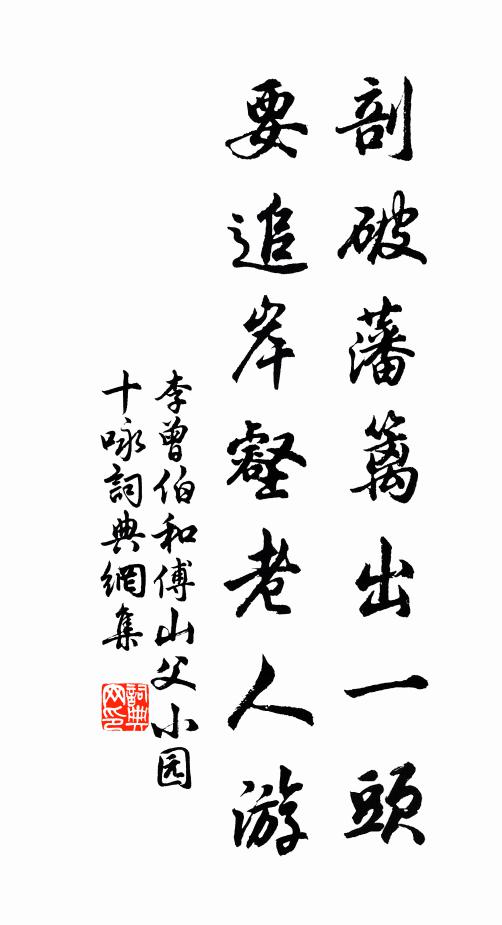 剖破藩篱出一頭
要追岸壑老人游
李曾伯和傅山父小园
十咏詞典網集
詞典网印